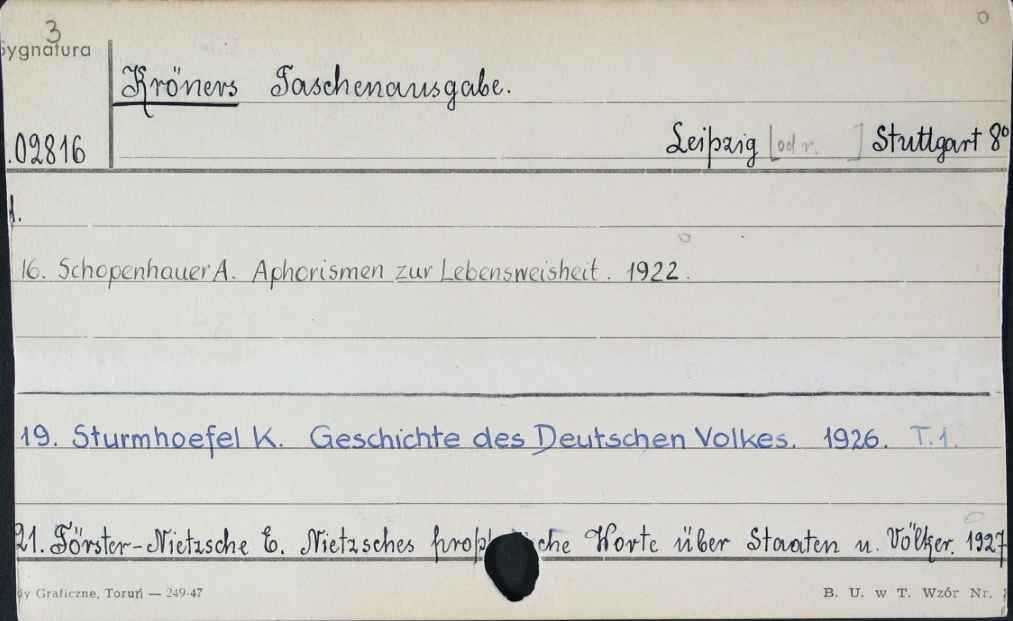 3
Sygnatura
Kröners Taschenausgabe.
.02816
Leipzig [od r. ] Stuttgart 8º
1.
16. Schopenhauer A. Aphorismen zur Lebensweisheit. 1922.
19. Sturmhoefel K. Geschichte des Deutschen Volkes. 1926. T.1.
21. Förster-Nietzsche E. Nietzsches prop che Worte über Staaten u. Völker. 1927
dy Graficzne, Toruń — 249-47
B. U. w T. Wzór Nr.